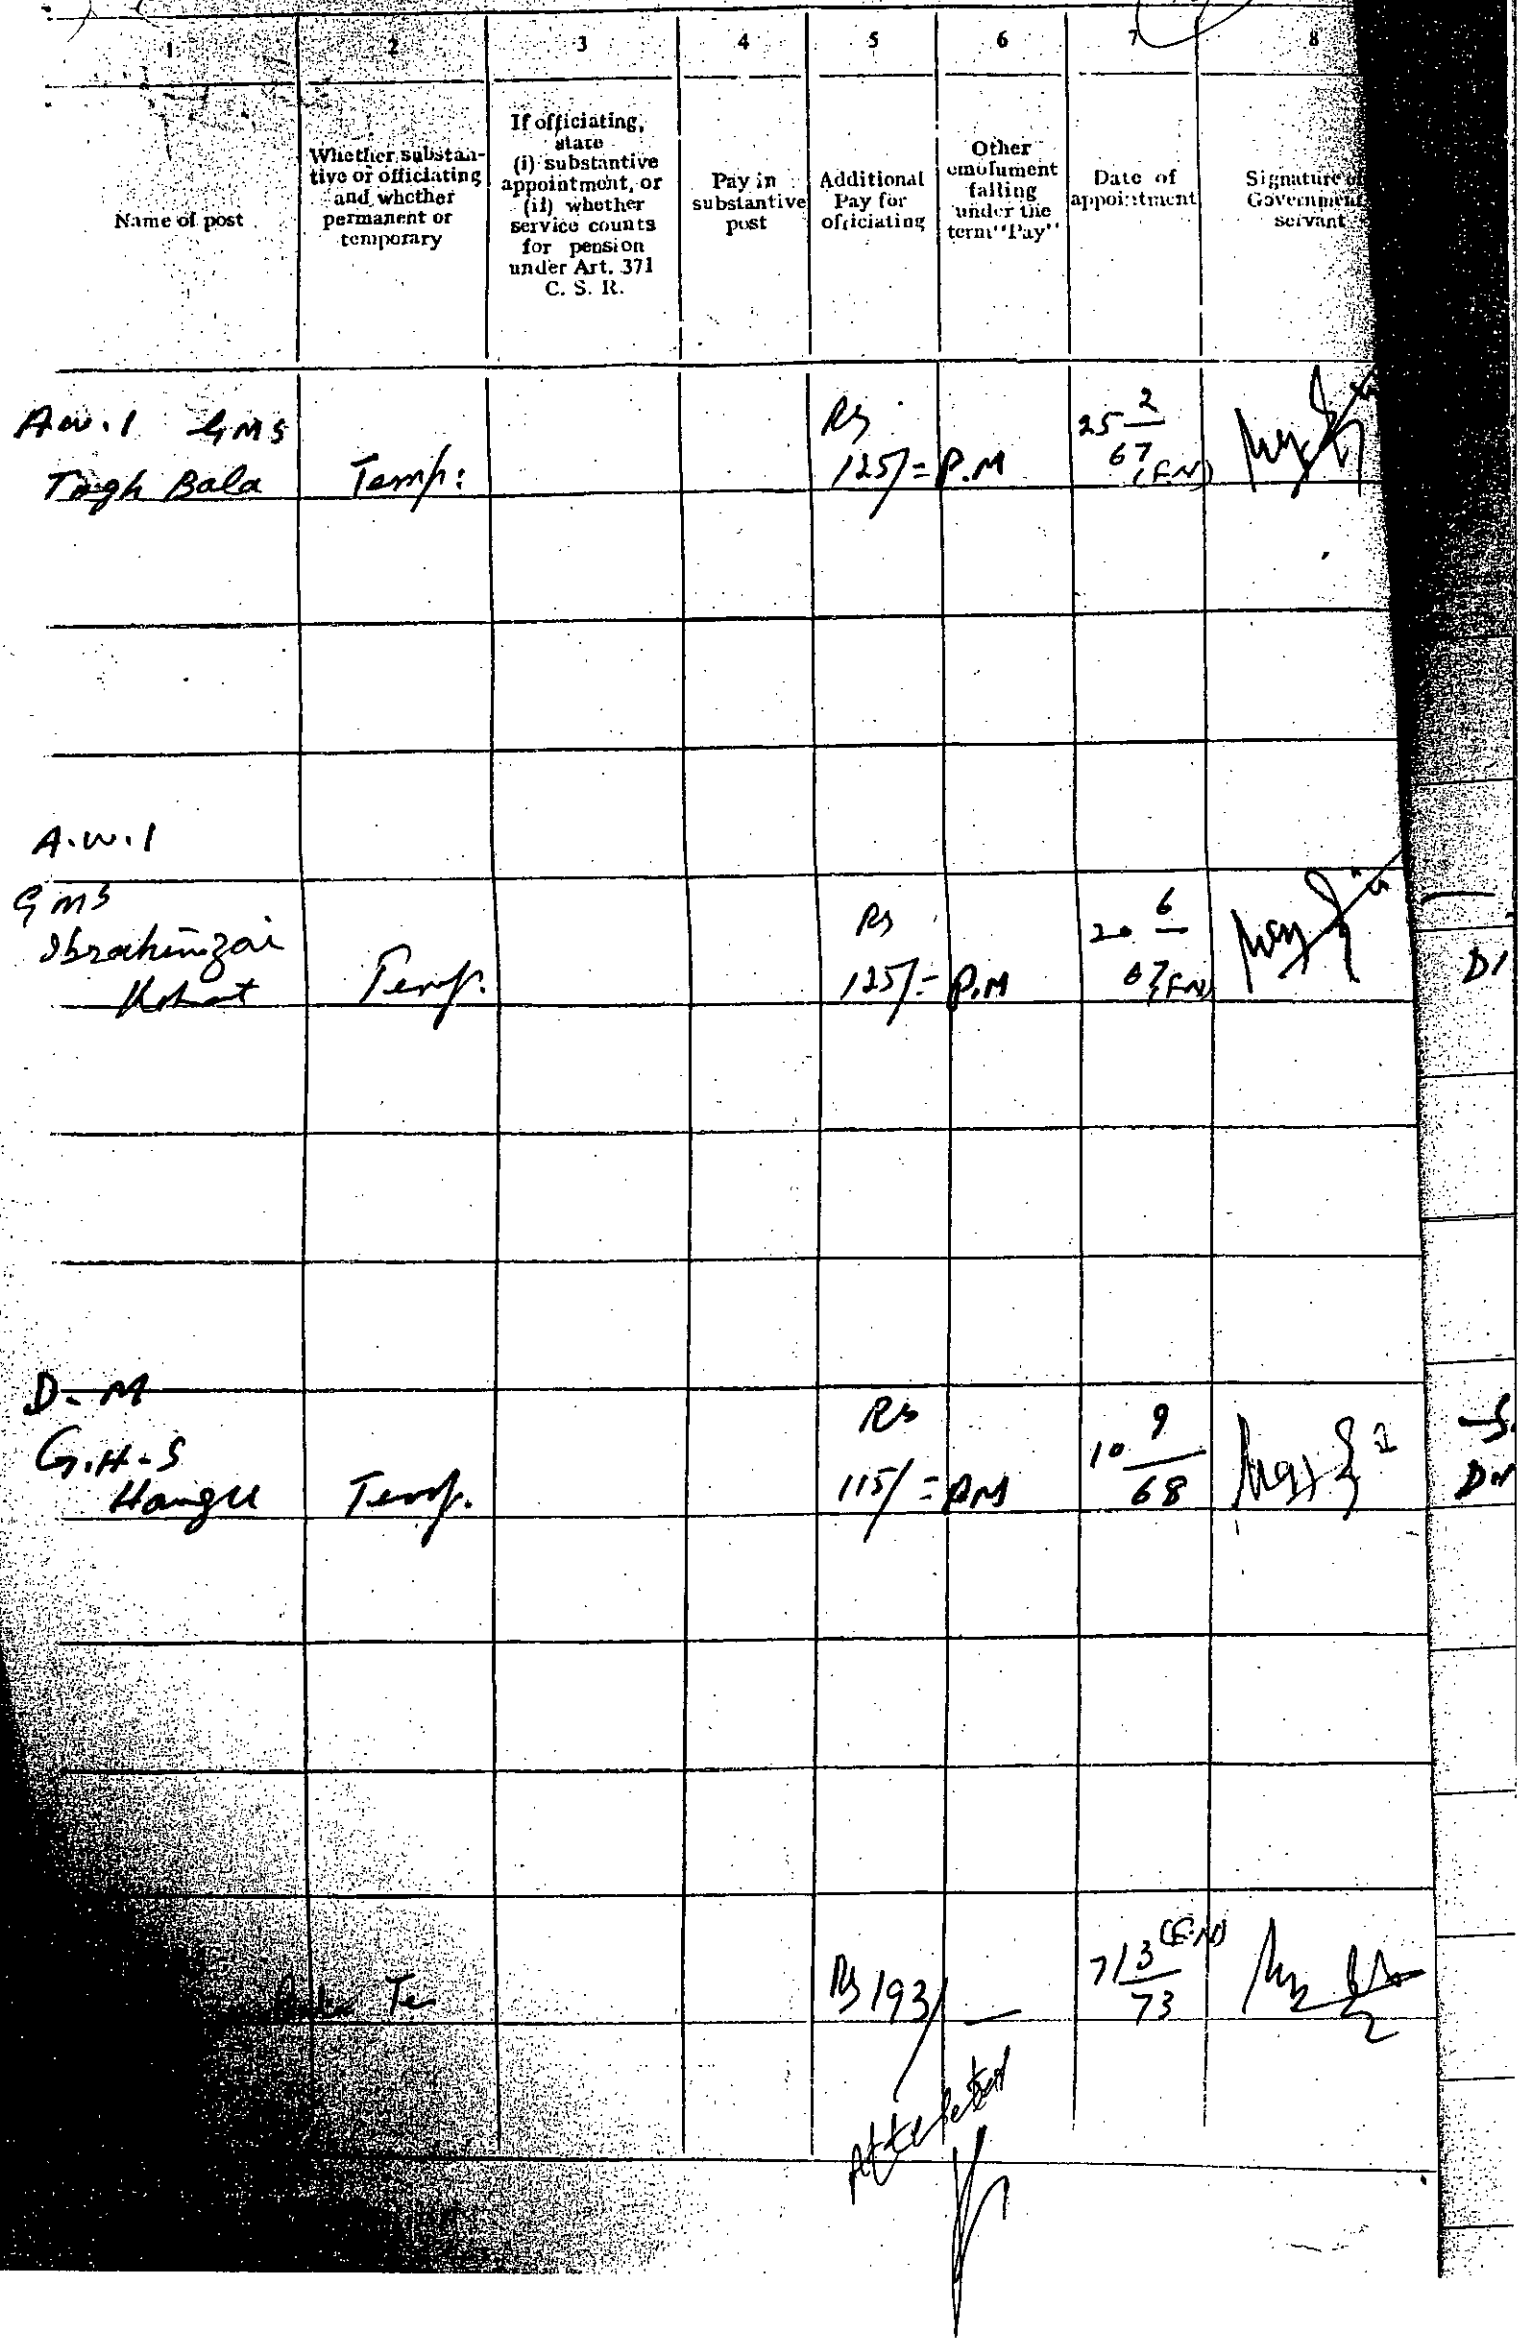 1 2 3 4 5 6 7 8
Name of post
Whether substan-
tive or officiating
and whether
permanent or
temporary
If officiating,
state
(i) substantive
appointment, or
(ii) whether
service counts
for pension
under Art. 371
C. S. R.
Pay in
substantive
post
Additional
Pay for
officiating
Other
emolument
falling
under the
term "Pay"
Date of
appointment
Signature of
Government
servant
A.W.I GMS
Togh Bala
Temp:
Rs
125/= P.M
25 2
67 (F.N)
A.W.I
GMS
Ibrahimzai
Kohat
Temp.
Rs
125/= P.M
20 6
67 (F.N)
D.M
G.H.S
Hangu
Temp.
Rs
115/= P.M
10 9
68
Bala Te
Rs 193/
7/3 (F.N)
73
Attested